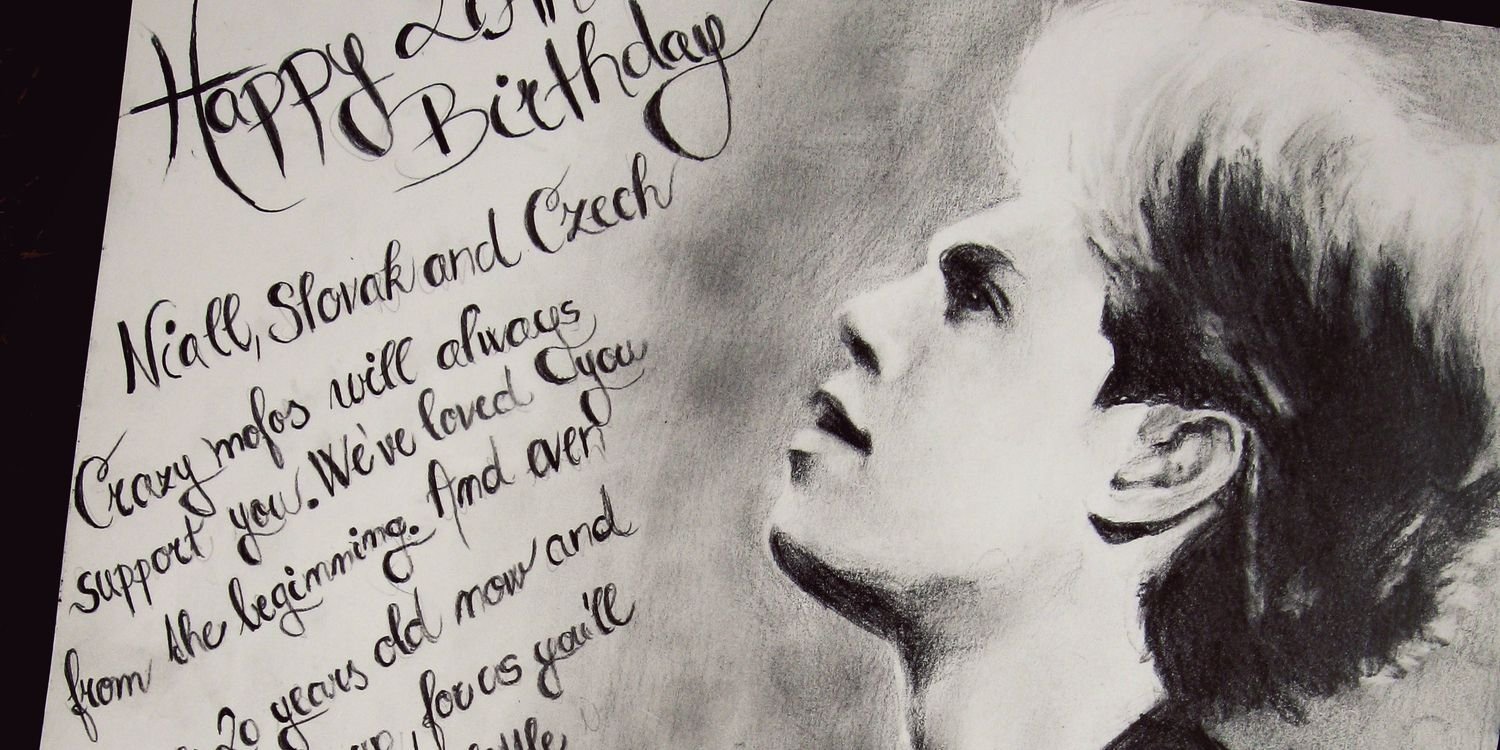 Happy 20th
Birthday
Niall, Slovak and Czech
Crazy mofos will always
support you. We've loved you
from the beginning. And even
20 years old now and
for us you'll